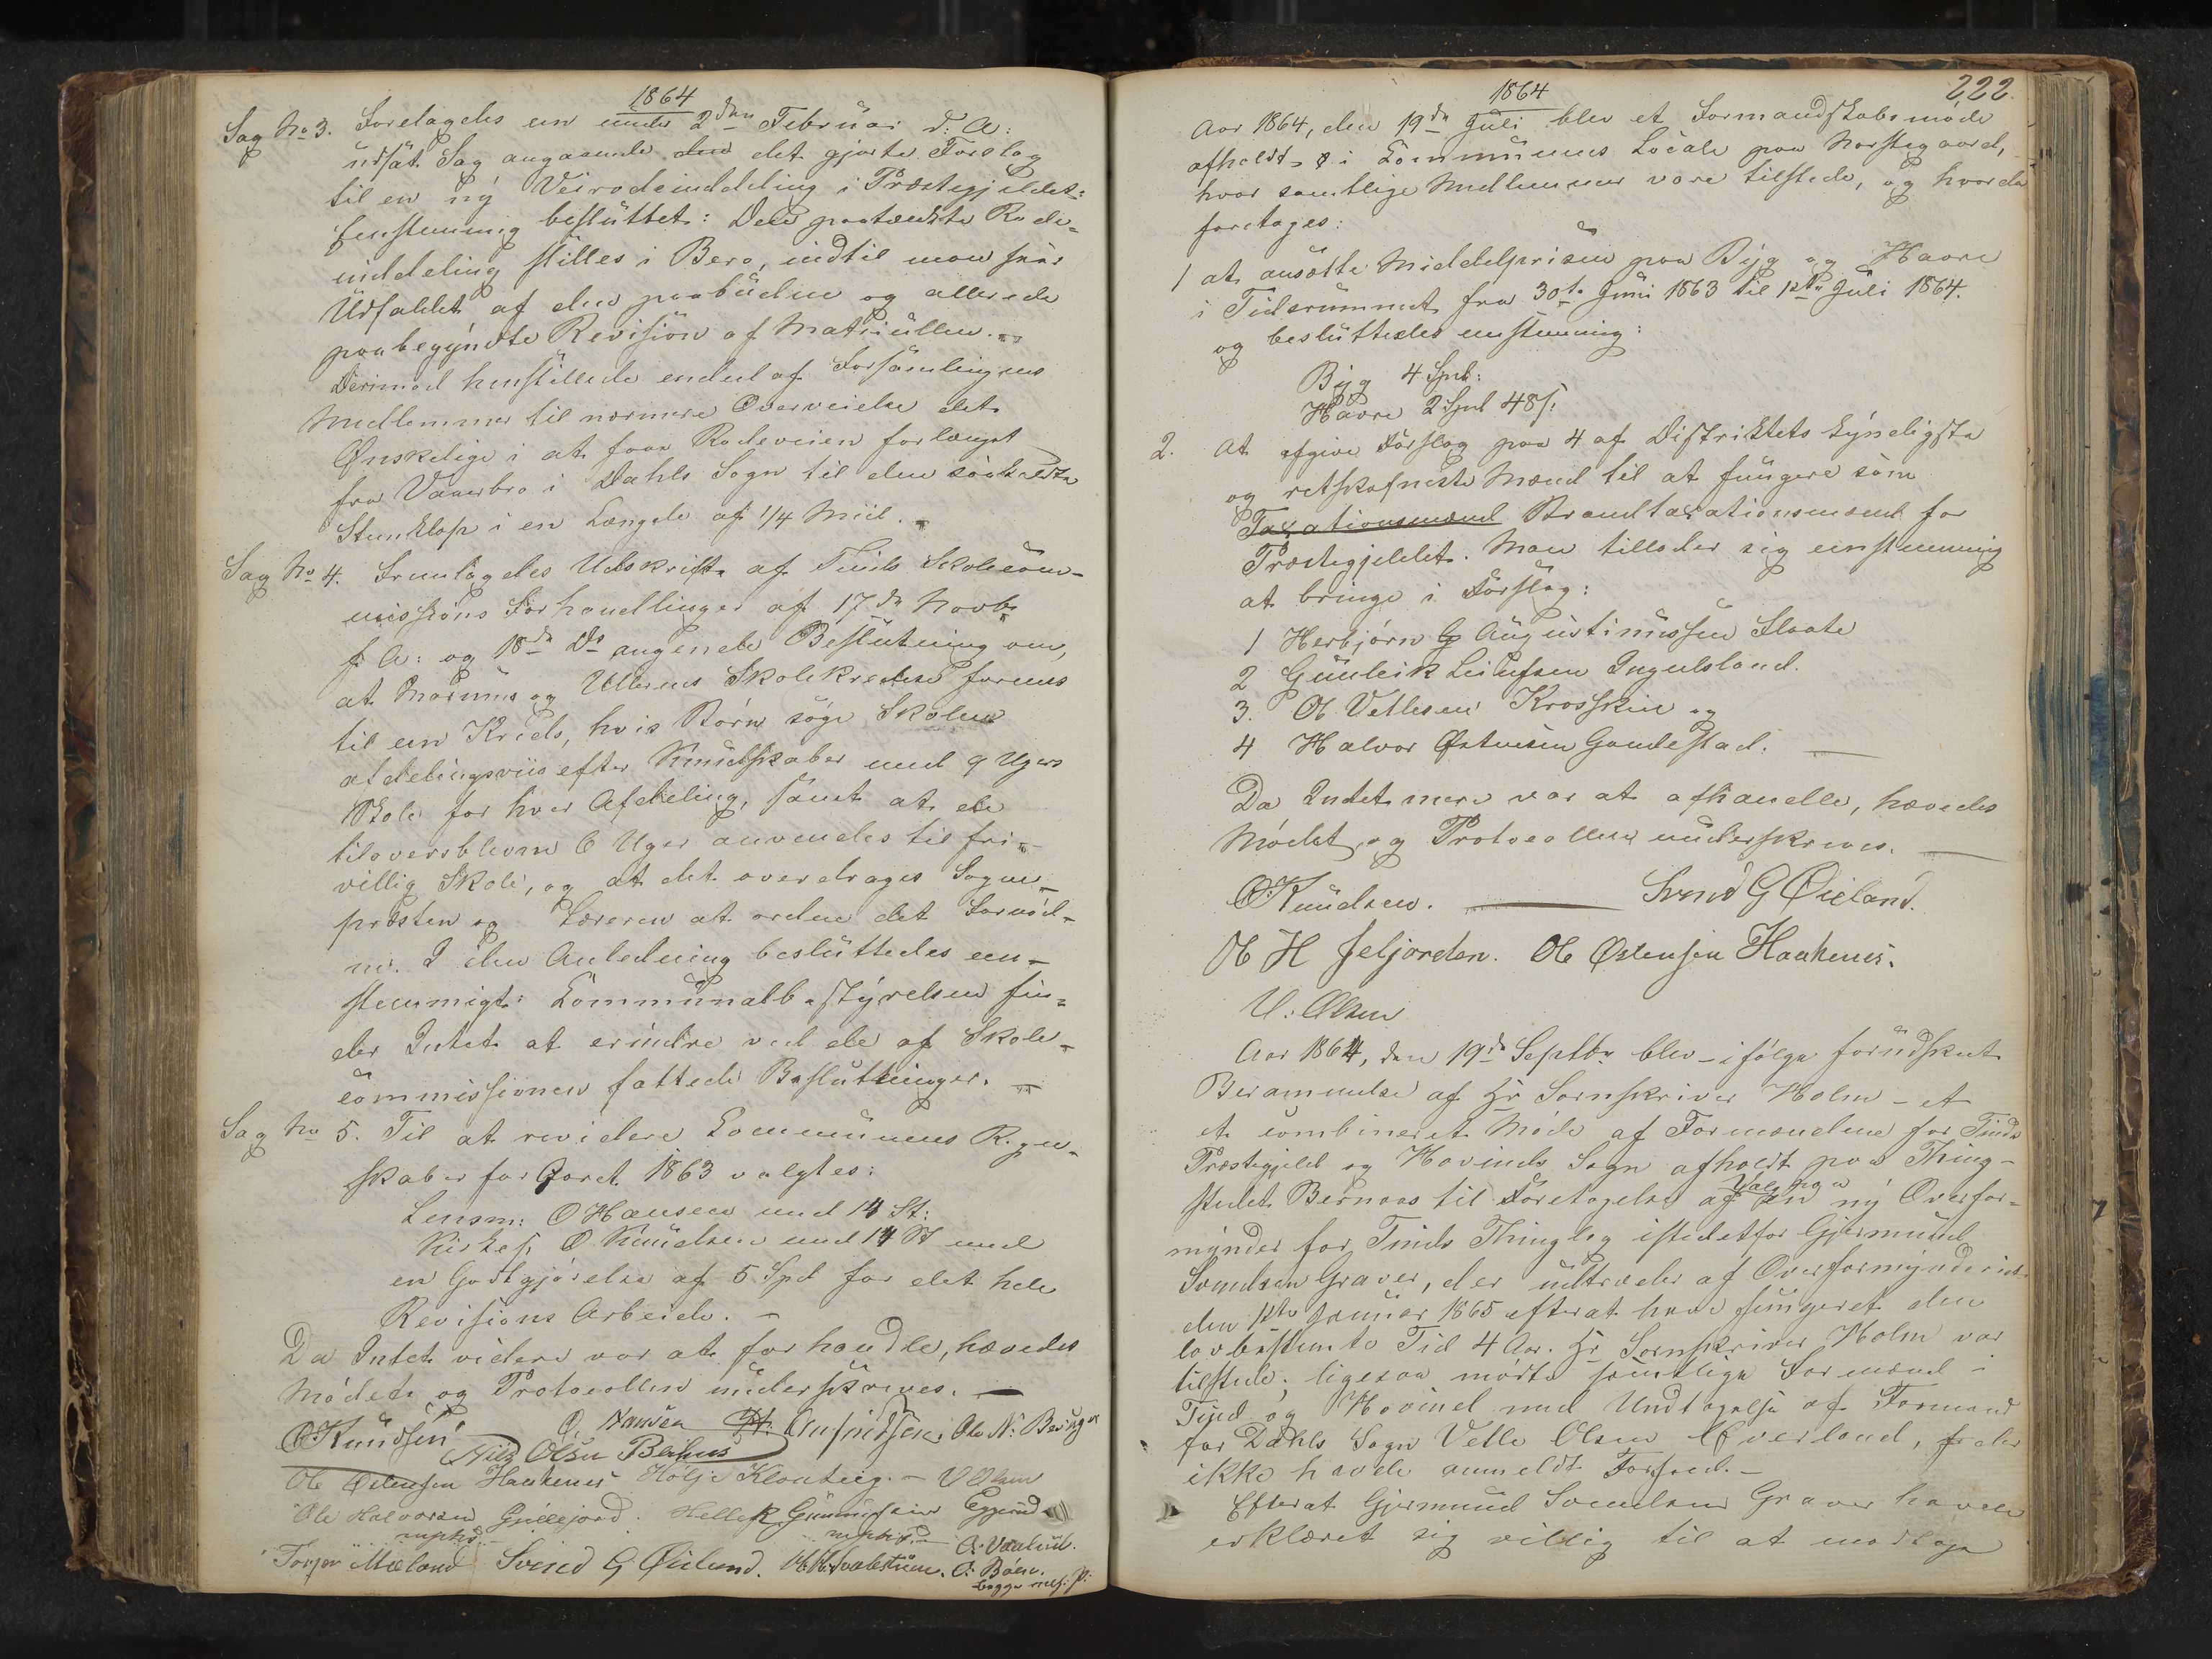 1864
Sag No 3. Foretagdes en under 2den Februar d. A:
udsat Sag angaaende den det gjorte Forslag
til en ny Veirodeinddeling i Præstegjeldet:
Eenstemmig besluttet: Den paatænkte Rode-
inddeling stilles i Bero, indtil man seer
Udfaldet af den paabudne og allerede
paabegyndte Revision af Matriculen. -
Derimod henstillede endeel af Forsamlingens
Medlemmer til nærmere Overveielse det
Ønskelige i at faae Rodeveien forlænget
fra Vaaerbro i Dahls Sogn til den saakaldte
Steenklop i en Længde af 1/4 Miil. -
Sag No 4. Fremlagdes Udskrift af Tinds Skolecom-
missions Forhandlinger af 17de Novbr
f. A: og 18de Ds angaaende Beslutning om,
at Marums og Ullerens Skolekredse forenes
til een Kreds, hvis Børn søge Skolen
afdelingsviis efter Kundskaber med 9 Ugers
Skole for hver Afdeling, samt at de
tiloversblevne 6 Uger anvendes til fri-
villig Skole, og at det overdrages Sogne-
præsten og Læreren at ordne det Fornød-
ne. I den Anledning besluttedes een-
stemmigt: Communalbestyrelsen fin-
der Intet at erindre ved de af Skole-
commissionen fattede Beslutninger. -
Sag No 5. Til at revidere Communens Regn-
skaber for Aaret 1863 valgtes:
Lensm: O Hansen med 14 St:
Kirkes. O Knudsen med 14 St med
en Godtgjørelse af 5 Spd for det hele
Revisions Arbeide. -
Da Intet videre var at forhandle, hævedes
Mødet og Protocollen underskreves. -
OKnudsen O. Hansen Ole N: Berg
Nils Olsen Bakhus
Ole Østensen Haakenes Hølje Kloxteig. - V Olsen
Ole Halvorsen Gjellejord. Hellek Gunnufsen Eggerud
mphp. mphp. - O: Vaalid.
Torger Mæland Svend G Øieland. O: Bøen.
begge
1864
222.
Aar 1864, den 19de Juli blev et Formandskabsmøde
afholdt i Communens Locale paa Norstegaard,
hvor samtlige Medlemmer vare tilstede, og hvor da
foretoges:
1 at ansætte Middelprisen paa Byg og Havre
i Tidsrummet fra 30te Juni 1863 til 1ste Juli 1864.
og besluttedes enstemmig:
Byg 4 Spd:
Havre 2 Spd 48 s:
2. At afgive Forslag paa 4 af Distriktets kyndigste
og retskafneste Mænd til at fungere som
Taxationsmænd Brandtaxationsmænd for
Præstegjeldet. Man tillader sig eenstemmig
at bringe i Forslag:
1 Herbjørn G Augustinussen Flaate
2 Gunleik Leilufsen Ingulsland.
3. Ol. Vetlesen Krosskin og
4 Halvor Østensen Gaudestad.
Da Intet mere var at afhandle, hævedes
Mødet og Protocollen underskreves.
OKnudsen. Svend G Øieland.
Ol H Seljorden. Ole Østensen Haakenes.
V: Olsen
Aar 1864, den 19de Septbr blev - ifølge forudskeet
Berammelse af Hr Sornskriver Holm - et
et combineret Møde af Formændene for Tinds
Præstegjeld og Hovinds Sogn afholdt paa Thing-
stedet Bernaas til Foretagelse af Valg paa en ny Overfor-
mynder for Tinds Thinglag istedetfor Gjermund
Svendsen Graver, der udtræder af Overformynderiet
den 1ste Januar 1865 efterat have fungeret den
lovbestemte Tid 4 Aar. Hr Sornskriver Holm var
tilstede; ligesaa mødte samtlige Formænd i
Tind og Hovind med Undtagelse af Formand
for Dahls Sogn Vetle Olsen Øverland, der
ikke havde anmeldt Forfald. -
Efterat Gjermund Svendsen Graver havde
erklæret sig villig til at modtage